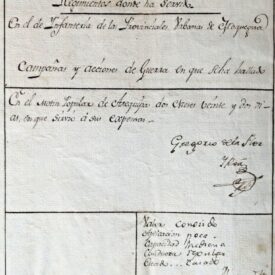 Regimientos donde ha servido
En el de Infanteria de las Provinciales Urbanas de
Campañas y acciones de Guerra en que se ha hallado
En el Motin Popular de Arequipa dos meses veinte y dos di-
as, en que sirvió á sus expensas.
Gregorio de la
Valor Conocido
Aplicacion poca
Capacidad Mediana
Conducta
Estado Casado